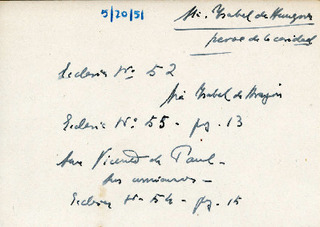 5/20/51
Sta. Ysabel de Hungria
heroe de la caridad
Ecclesia Nº 52
Sta Ysabel de Aragon
Ecclesia Nº 55 - pag. 13
San Vicente de Paul -
sus
Ecclesia Nº 54 - pag. 15